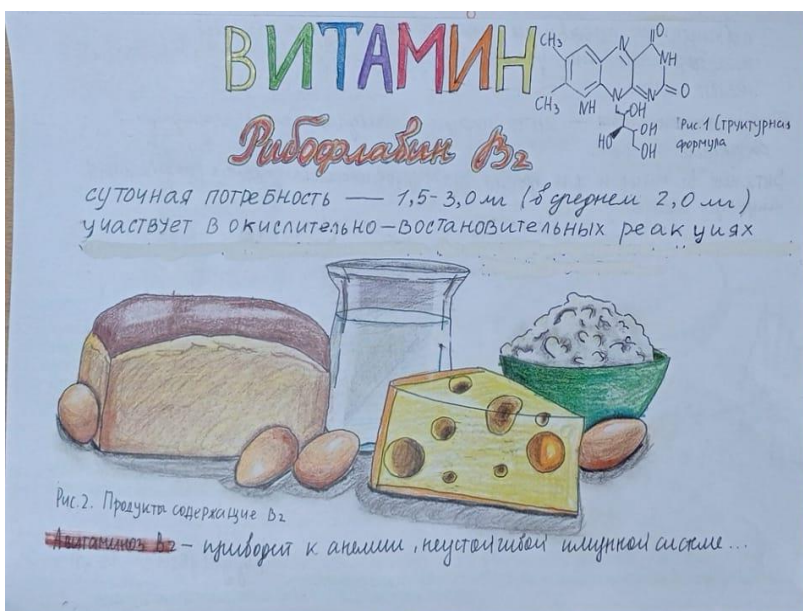 ВИТАМИН
Рибофлавин В₂
CH₃
CH₃
N
O
NH
O
N
N
NH
OH
OH
HO
OH
Рис.1 Структурная
формула
суточная потребность — 1,5-3,0 мг (в среднем 2,0 мг)
участвует в окислительно-востановительных реакциях
Рис.2. Продукты содержащие В₂
Авитаминоз В₂ - приводит к анемии, неустойчивой имунной системе...